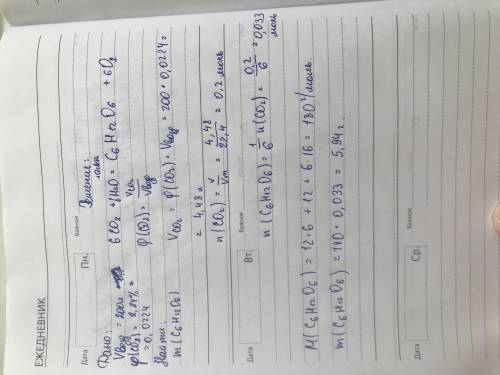 ЕЖЕДНЕВНИК
Дата Пн. Важное
Дано:
Vвозд = 200л
φ(CO2) = 2,24% =
= 0,0224
Найти:
m(C6H12O6)
Решение:
6CO2 + 6H2O = C6H12O6 + 6O2
φ(CO2) = VCO2 / Vвозд
VCO2 = φ(CO2) · Vвозд = 200 · 0,0224 =
= 4,48 л
n(CO2) = V / Vm = 4,48 / 22,4 = 0,2 моль
Дата Вт. Важное
n(C6H12O6) = 1/6 n(CO2) = 0,2 / 6 = 0,033
моль
M(C6H12O6) = 12·6 + 12 + 6·16 = 180 г/моль
m(C6H12O6) = 180 · 0,033 = 5,94 г.
Дата Ср. Важное